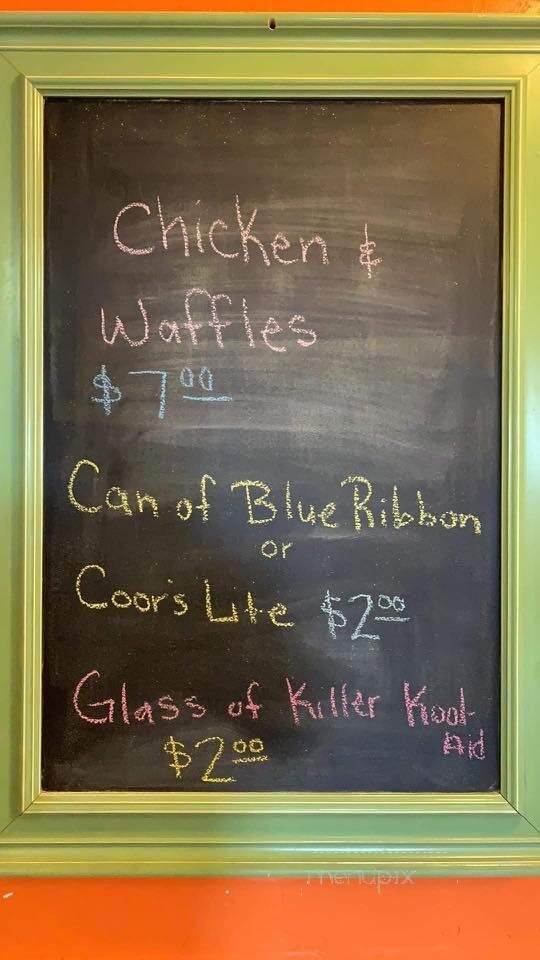 Chicken &
Waffles
$7.00
Can of Blue Ribbon
or
Coor's Lite $2.00
Glass of Killer Kool-
Aid
$2.00
menupix